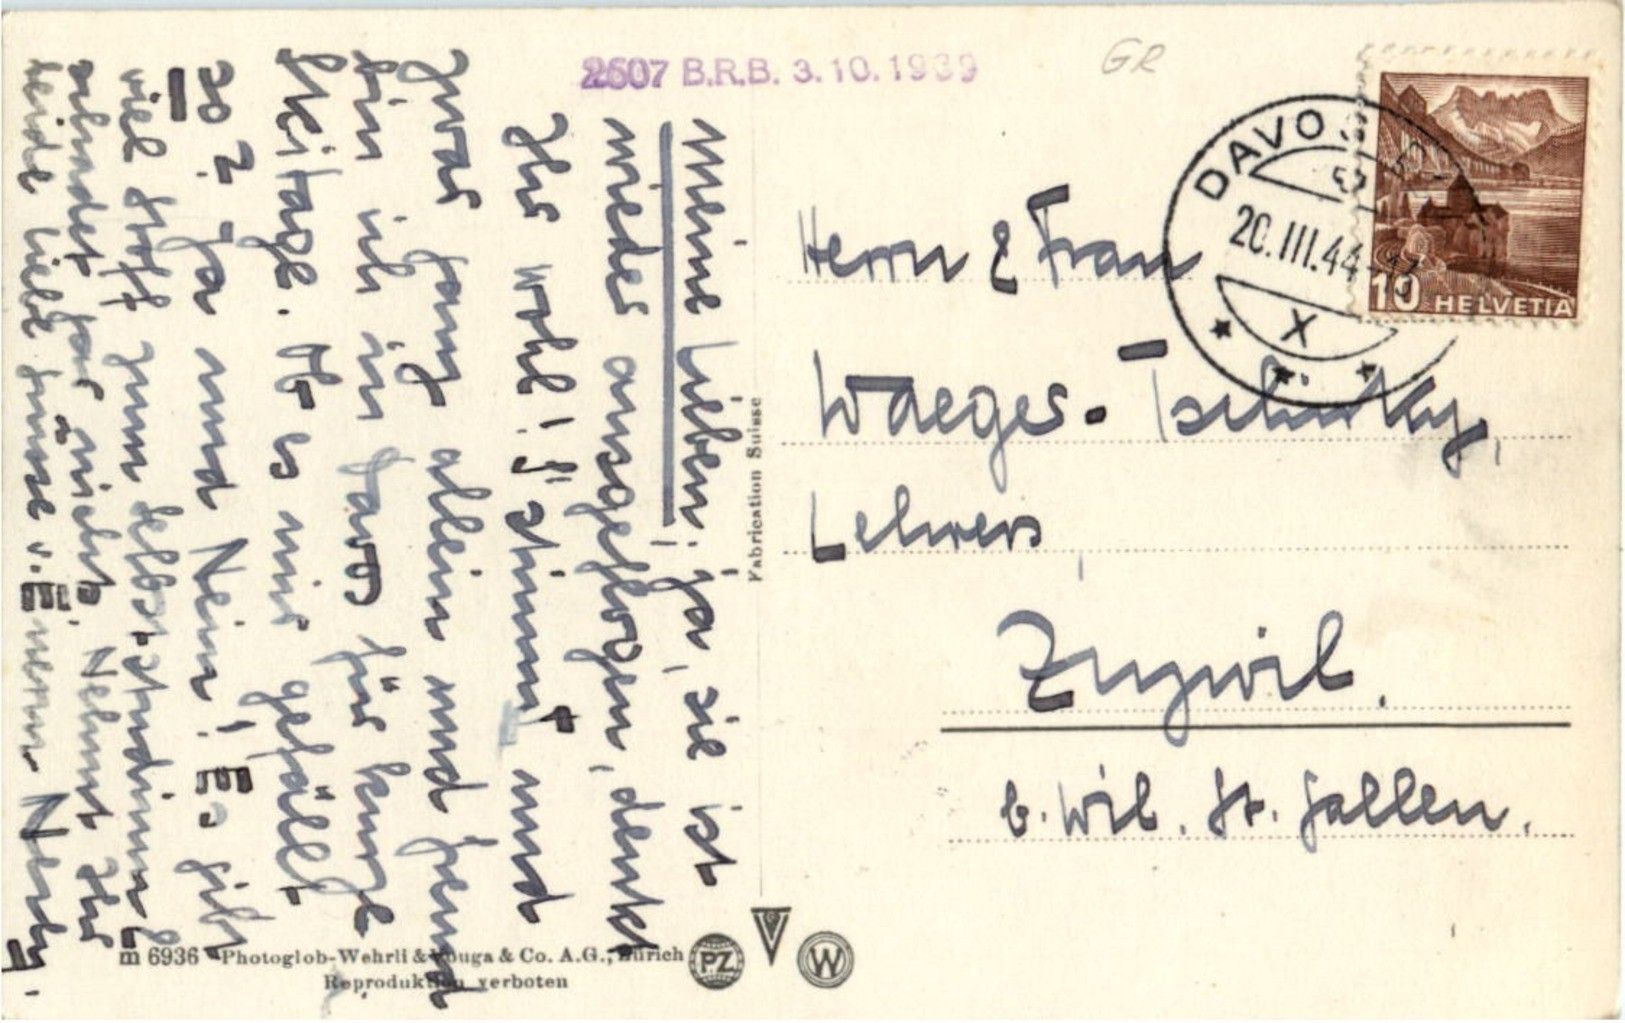 2507 B.R.B. 3.10.1939
GR
DAVOS
20.III.44
X
10 HELVETIA
Herrn & Frau
Waeger-
Lehrers
Zuzwil.
b. Wil. St. Gallen.
Fabrication Suisse
Meine Lieben; ja, sie ist
wieder ausgeflogen, denkt
Ihr wohl! 's stimmt und
zwar ganz allein und fremd
bin ich in Davos für kurze
Skitage. Ob es mir gefällt
so? Ja und Nein! Es gibt
viel Stoff zum
gar nicht. Nehmt Ihr
beide liebe Grüsse v. Eurem
m 6936 Photoglob-Wehrli & Vouga & Co. A.G., Zürich
Reproduktion verboten
PZ
V
G
W